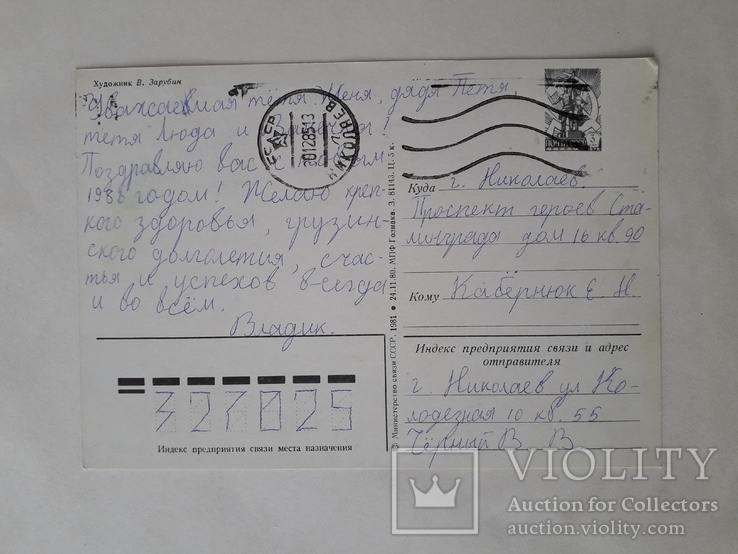 Художник В. Зарубин
Уважаемая тётя Женя, дядя Петя,
тётя Люда и !
Поздравляю вас с новым
1986 годом! Желаю креп-
кого здоровья, грузин-
ского долголетия, счас-
тья и успехов всегда
и во всём.
Владик.
СССР
НИКОЛАЕВ
ПОЧТА СССР
Куда г. Николаев.
Проспект героев Ста-
линграда дом 16 кв. 90
Кому Кабернюк Е. Н.
Индекс предприятия связи и адрес
отправителя
г. Николаев ул Ко-
лодезная 10 кв. 55
Чёрный В. В.
327025
Индекс предприятия связи места назначения
© Министерство связи СССР. 1981 ● 24.11.80. МПФ Гознака. З. 81143. Ц. 5 к.
VIOLITY
Auction for Collectors
auction.violity.com